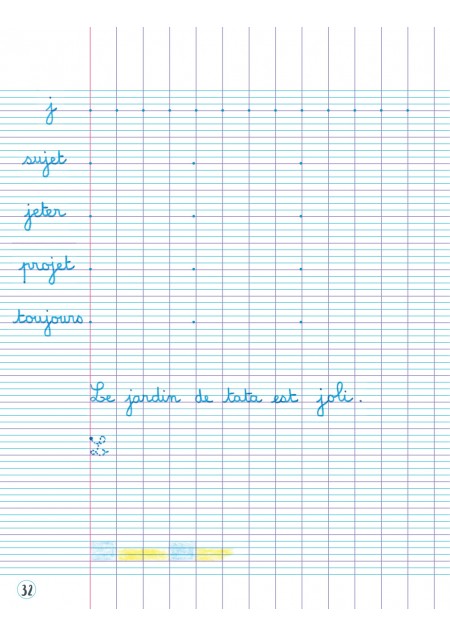 j
sujet
jeter
projet
toujours
Le jardin de tata est joli.
L
32